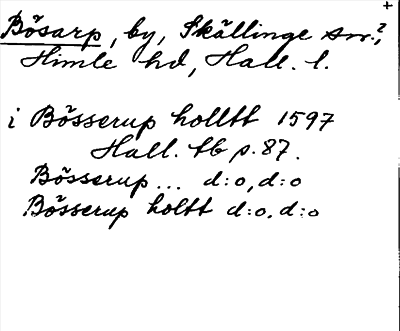 Bösarp, by, Skällinge sn?,
Himle hd, Hall. l.
i Bösserup holltt 1597
Hall. tb p. 87.
Bösserup... d:o, d:o
Bösserup holtt d:o. d:o